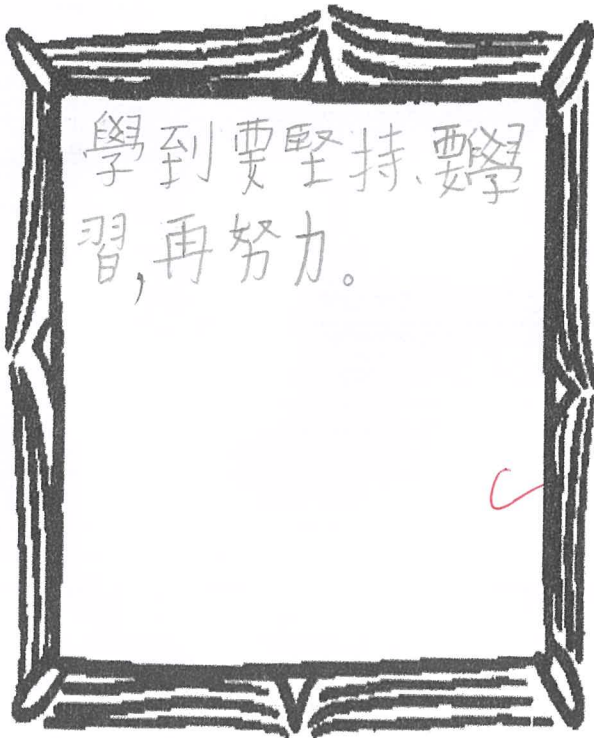 學到要堅持、要學
習,再努力。